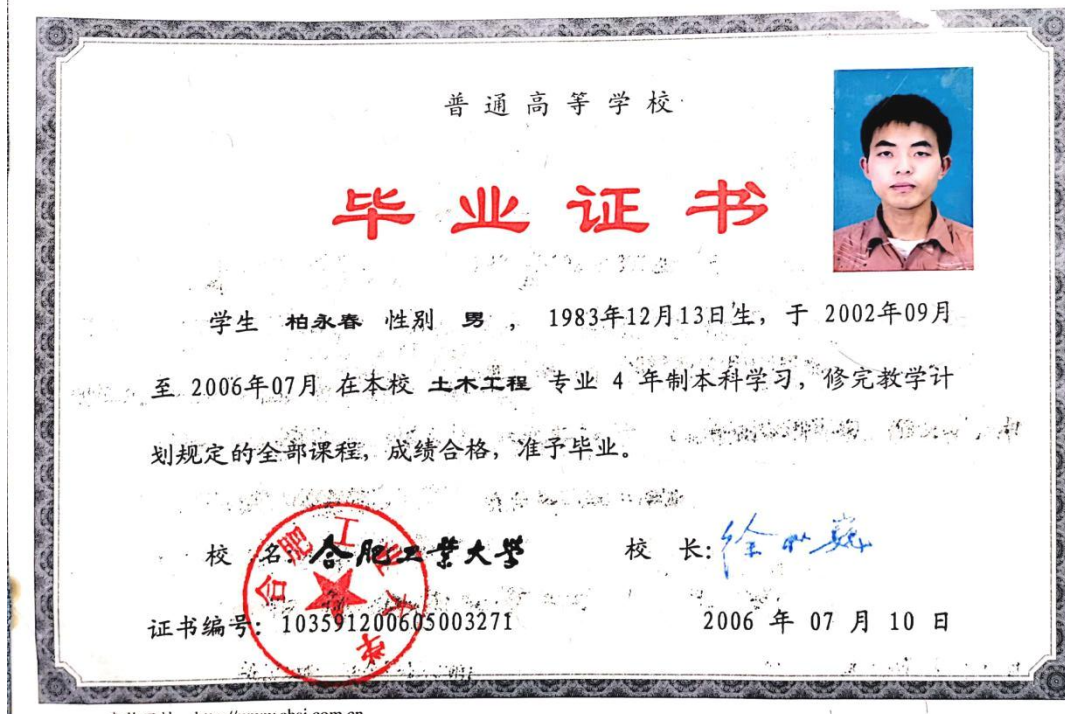 普通高等学校
毕业证书
学生 柏永春 性别 男 , 1983年12月13日生, 于 2002年09月
至 2006年07月 在本校 土木工程 专业 4 年制本科学习, 修完教学计
划规定的全部课程, 成绩合格, 准予毕业。
校 名: 合肥工业大学 校 长:
合肥工业大学
证书编号: 103591200605003271 2006 年 07 月 10 日
http://www.chsi.com.cn